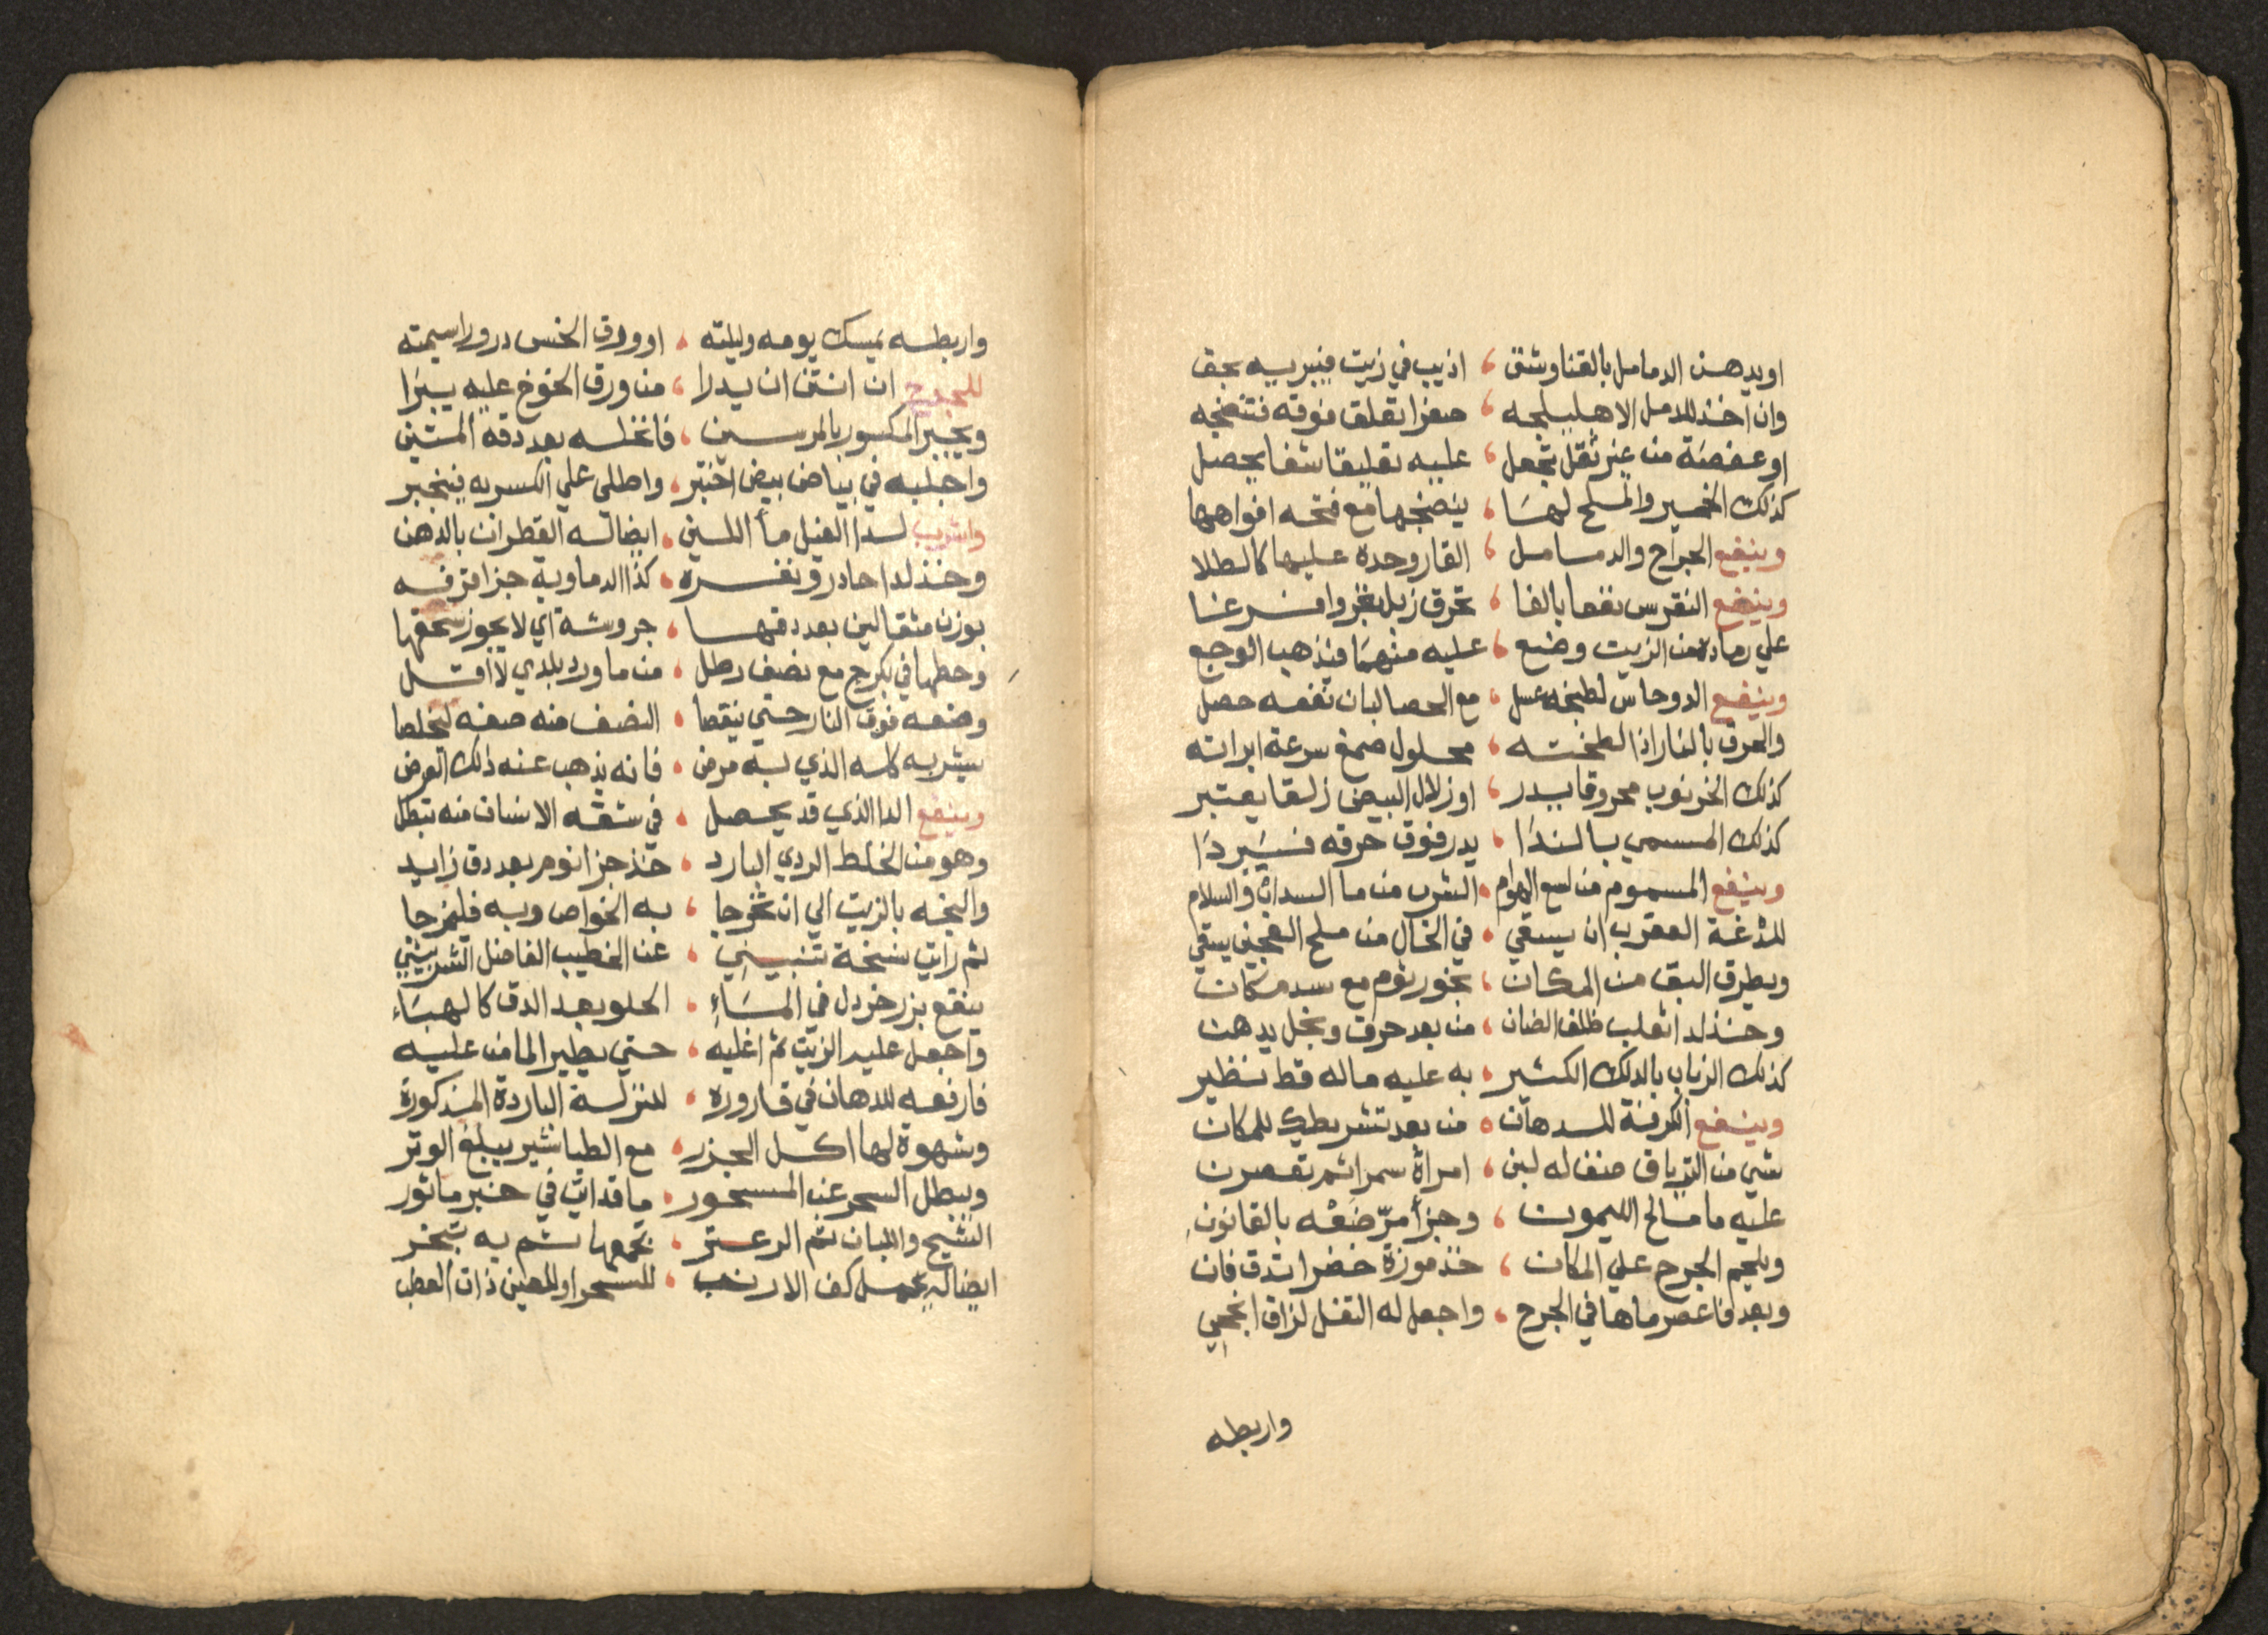 او يدهن الدمامل بالقنا وشق ، اذيب في زيت فيبريه بحق
وان اخذ للدمل الاهليلجه ، صفرا تعلق فوقه فتنضجه
او عفصة من غير ثقل تجعل ، عليه تعليقا شفا يحصل
كذلك الخمير والملح لهسا ، ينضجها مع فتحه افواهها
وينفع الجراح والدمامل ، القار وحده عليها كالطلا
وينفع النقرس نفعا بالغا ، تحرق زبل بقر وافرغا
علي رماده من الزيت وضع ، عليه منهما فيذهب الوجع
وينفع الدوحاس لطبخه عسل ، مع الحصا لبان نفعه حصل
والحرق بالنار اذا لطخته ، محلول صمغ سرعة ابراته
كذلك الخرنوب محروقا يدر ، او زلال البيض زلقا يعتبر
كذلك المسمي بالندا ، يدر فوق حرقه فيبردا
وينفع المسموم من لسع الهوام ، الشرب من ما السداب والسلام
للدغة العقرب ان يسقي ، في الخال من ملح العجين يسقي
ويطرق البق من المكان ، بخور ثوم مع سد مكان
وخذ لدا ثعلب ظلف الضان ، من بعد حرق وبخل يدهن
كذلك الزباب بالدلك الكثير ، به عليه ماله قط نظير
وينفع الكرفة للدهان ، من بعد تشريطك للمكان
شي من الترياق صنف له لبن ، امراة سمرا ثم تعصرن
عليه ما مالح الليمون ، وجزأ مرّ ضعه بالقانون
ويلحم الجرح علي المكان ، خذ موزة خضرا تدق فان
وبعد فاعصر ماها في الجرح ، واجعل له التفل لزاق انجحي
واربطه
واربطه يمسك يومه وليلته ، او ورق الخس درورا سيمته
للجروح ان انتن ان يدرا ، من ورق الخوخ عليه يبرا
ويجبر المكسور بالمرسين ، فانخله بعد دقه المتين
واجلبه في بياض بيض اختبر ، واطلي علي الكسر به فينجبر
واشرب لدا الفيل مأ اللبن ، ايضا له القطران بالدهن
وخذ لدا حادر ونفره ، كذا الدماوية جزا قرفه
بوزن مثقالين بعد دقها ، جروشة اي لا يجوز سحقها
وحطها في بكرج مع نصف رطل ، من ماورد بلدي لا اقل
وضعه فوق النار حتي ينقصا ، النصف منه صفه ليخلصا
يشربه كله الذي به مرض ، فانه يذهب عنه ذلك العرض
وينفع الدا الذي قد يحصل ، في شقه الانسان منه تبطل
وهو من الخلط الردي البارد ، خذ جزا ثوم بعد دق زايد
والبخه بالزيت الي ان تخرجا ، به الخواص وبه فليمزجا
ثم رايت نسخة تنبيني ، عن الخطيب الفاضل الشربيني
ينقع بزر خردل في الماء ، الحلو بعد الدق كالهباء
واجعل عليه الزيت ثم اغليه ، حتي يطير الما من عليه
فارفعه للدهان في قاروره ، للنزلة الباردة المذكورة
وشهوة لها اكل الجزر ، مع الطباشير يبلغ الوتر
ويبطل السحر عن المسحور ، ما قد اتي في خبر ماثور
الشيح واللبان ثم الزعتر ، تجمعها ثم به تبخر
ايضا له يحمل كف الارنب ، للسحر او للعين ذات العطب